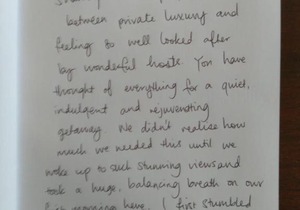 between private luxury and
feeling so well looked after
by wonderful hosts. You have
thought of everything for a quiet,
indulgent and rejuvenating
getaway. We didn't realise how
much we needed this until we
woke up to such stunning views and
took a huge, balancing breath on our
morning here. I first stumbled